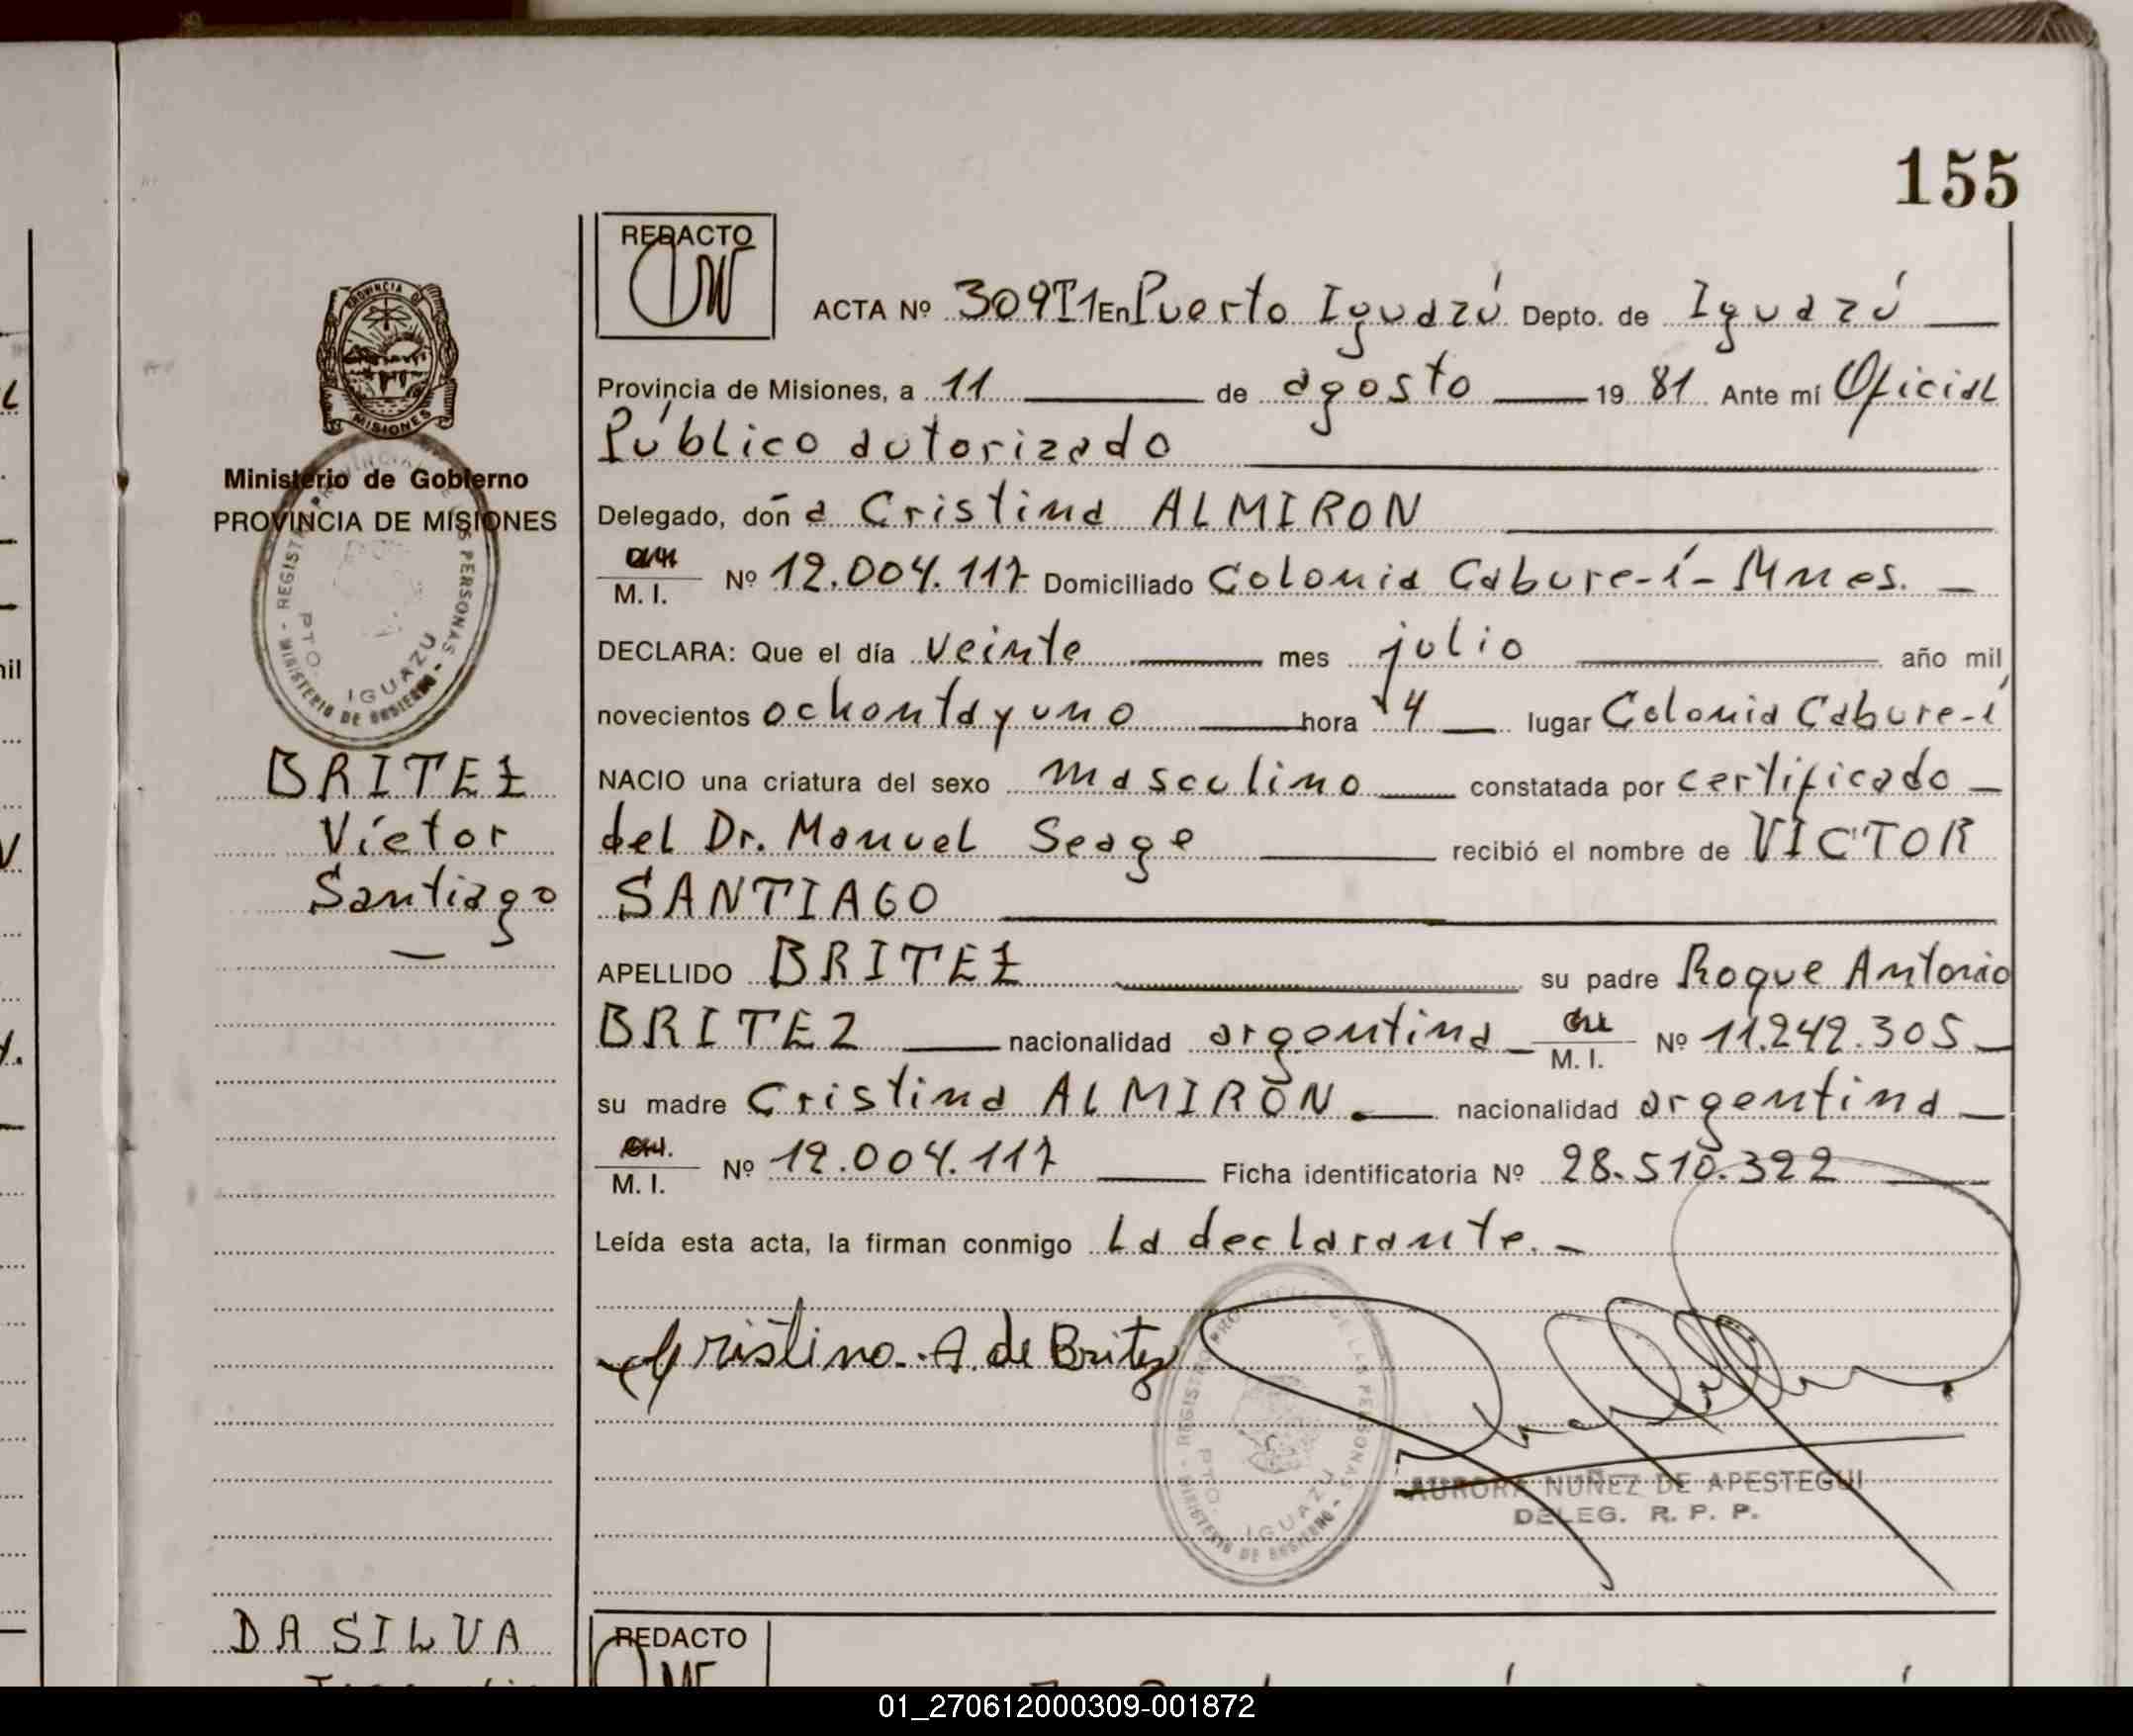 155
REDACTO
ACTA Nº 309T1 En Puerto Iguazú Depto. de Iguazú
Provincia de Misiones, a 11 de agosto 1981 Ante mí Oficial
Público autorizado
Delegado, doña Cristina ALMIRON
M. I. Nº 12.004.117 Domiciliado Colonia Cabure-í- Mnes.
DECLARA: Que el día veinte mes julio año mil
novecientos ochenta y uno hora 4 lugar Colonia Cabure-í
NACIO una criatura del sexo masculino constatada por certificado
del Dr. Manuel Seage recibió el nombre de VICTOR
SANTIAGO
APELLIDO BRITEZ su padre Roque Antonio
BRITEZ nacionalidad argentina M. I. Nº 11.242.305
su madre Cristina ALMIRON. nacionalidad argentina
M. I. Nº 12.004.117 Ficha identificatoria Nº 28.510.322
Leída esta acta, la firman conmigo La declarante.-
Cristina A. de Britez
AURORA NUÑEZ DE APESTEGUI
DELEG. R. P. P.
PROVINCIA DE
MISIONES
Ministerio de Gobierno
PROVINCIA DE MISIONES
PTO. IGUAZU
BRITEZ
Víctor
Santiago
DA SILVA
REDACTO
01_270612000309-001872